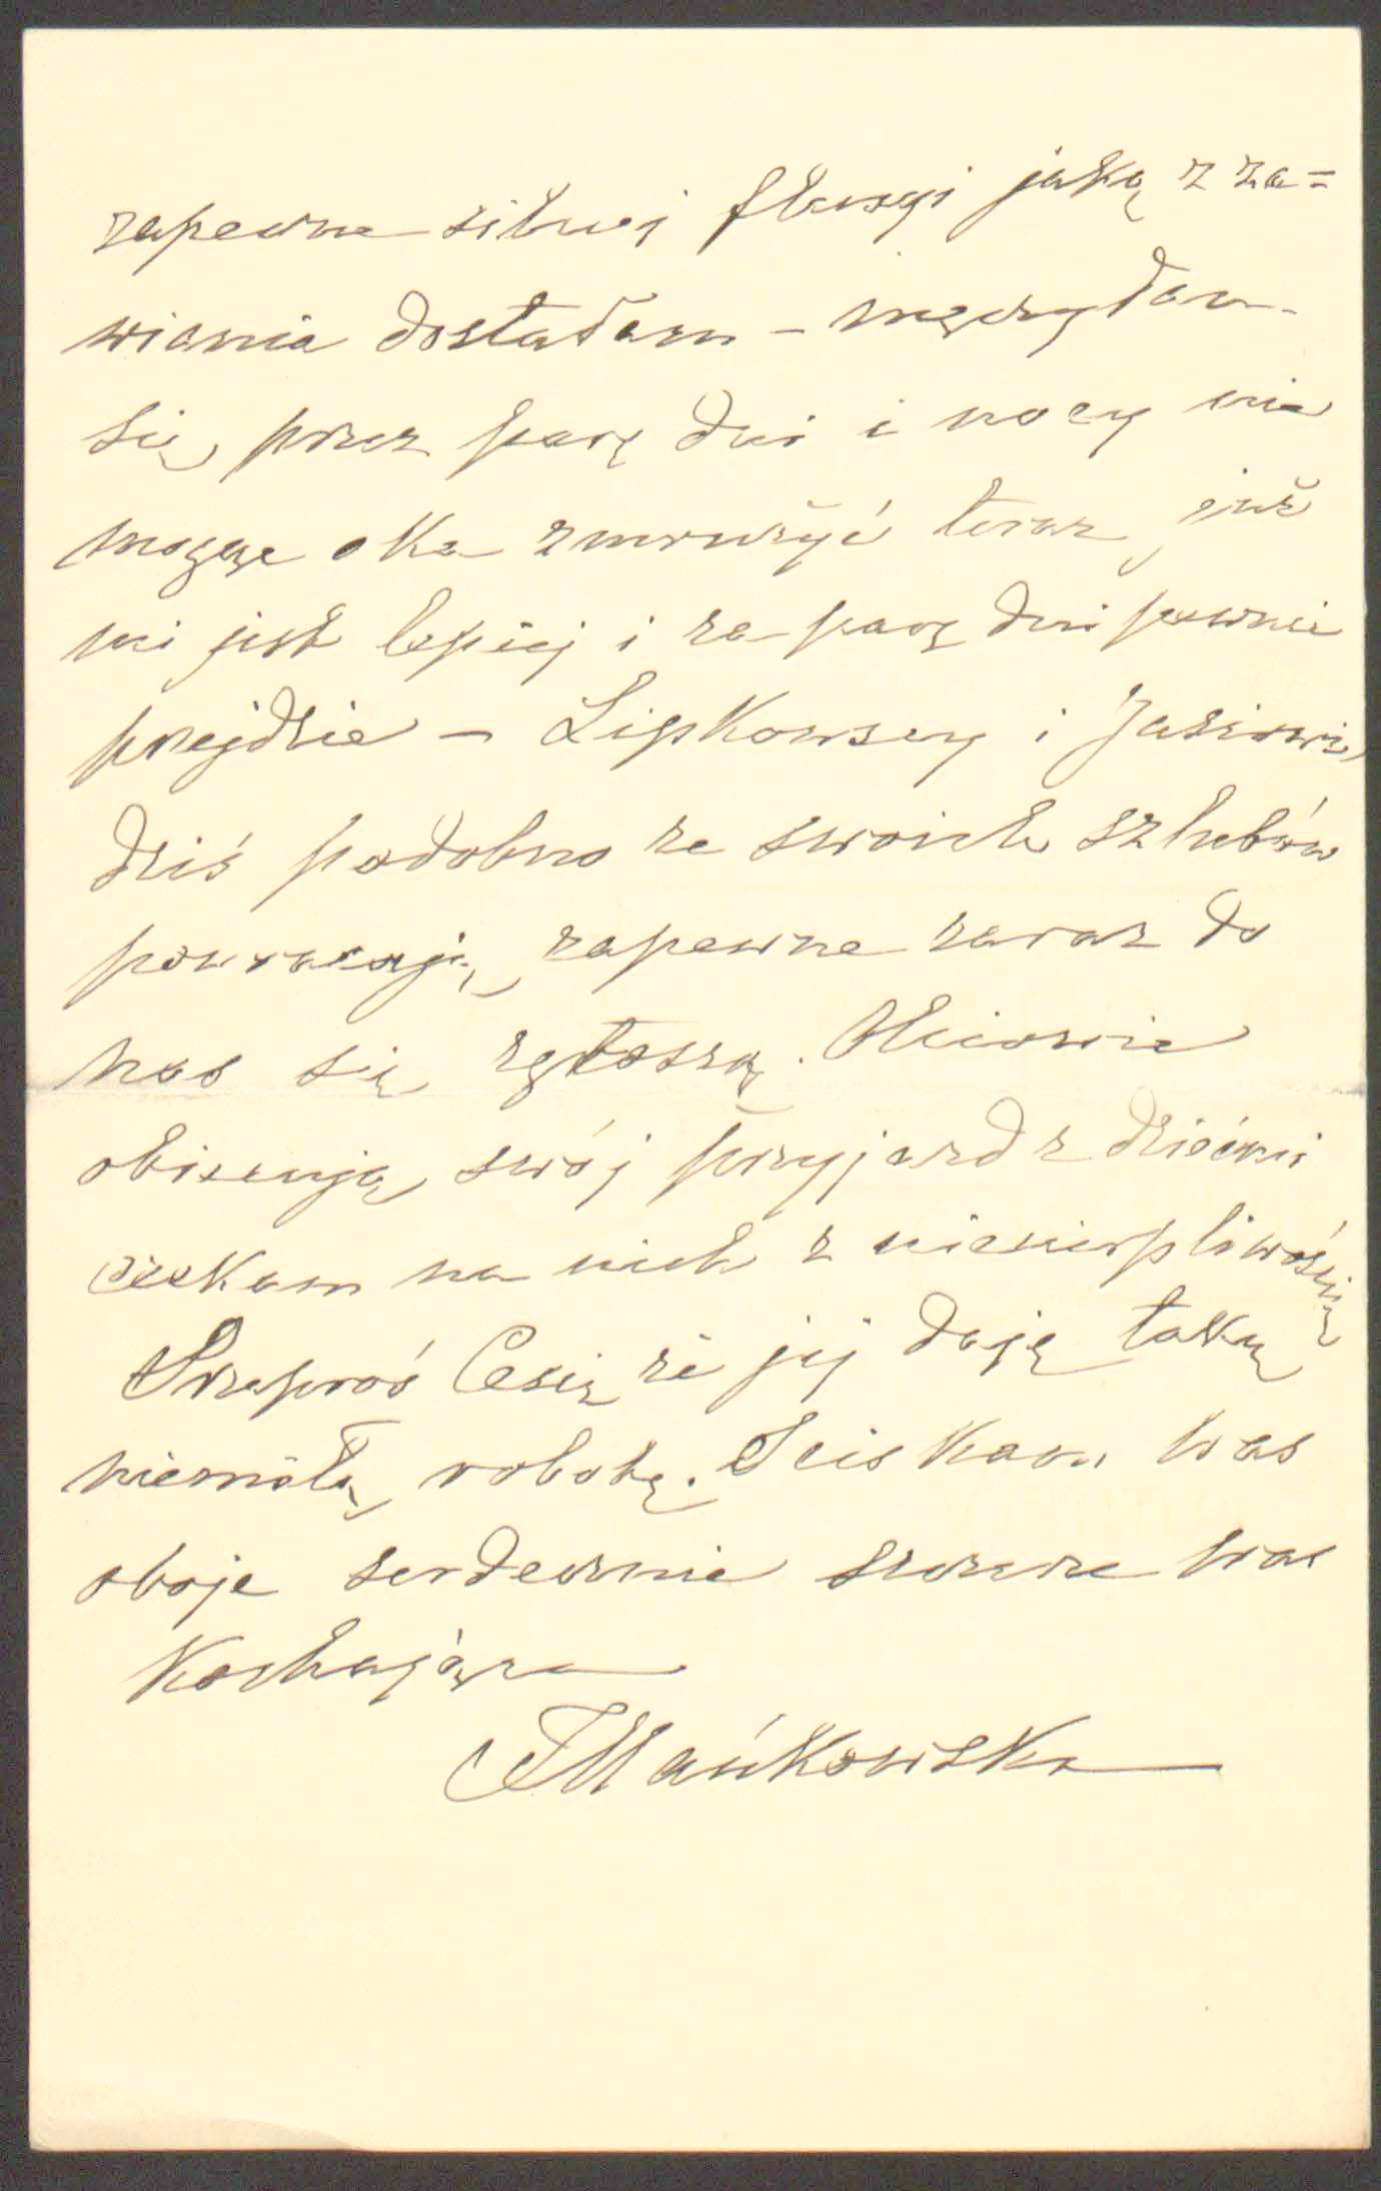 zapewne silnej fluxyi jaką z za=
wiania dostałam – męczyłam
się przez parę dni i nocy nie
mogąc oka zmrużyć teraz już
mi jest lepiej i za parę dni pewnie
przejdzie – Lipkowscy i Jasiowie
dziś podobno ze swoich szlubów
powracają, zapewne zaraz do
nas się zgłoszą.
obiecują swój przyjazd z dziećmi
czekam na nich z niecierpliwością
Przeproś Cesię że jej daję taką
niemiłą robotę. Sciskam was
oboje serdecznie szczerze was
Kochająca
Mańkowska